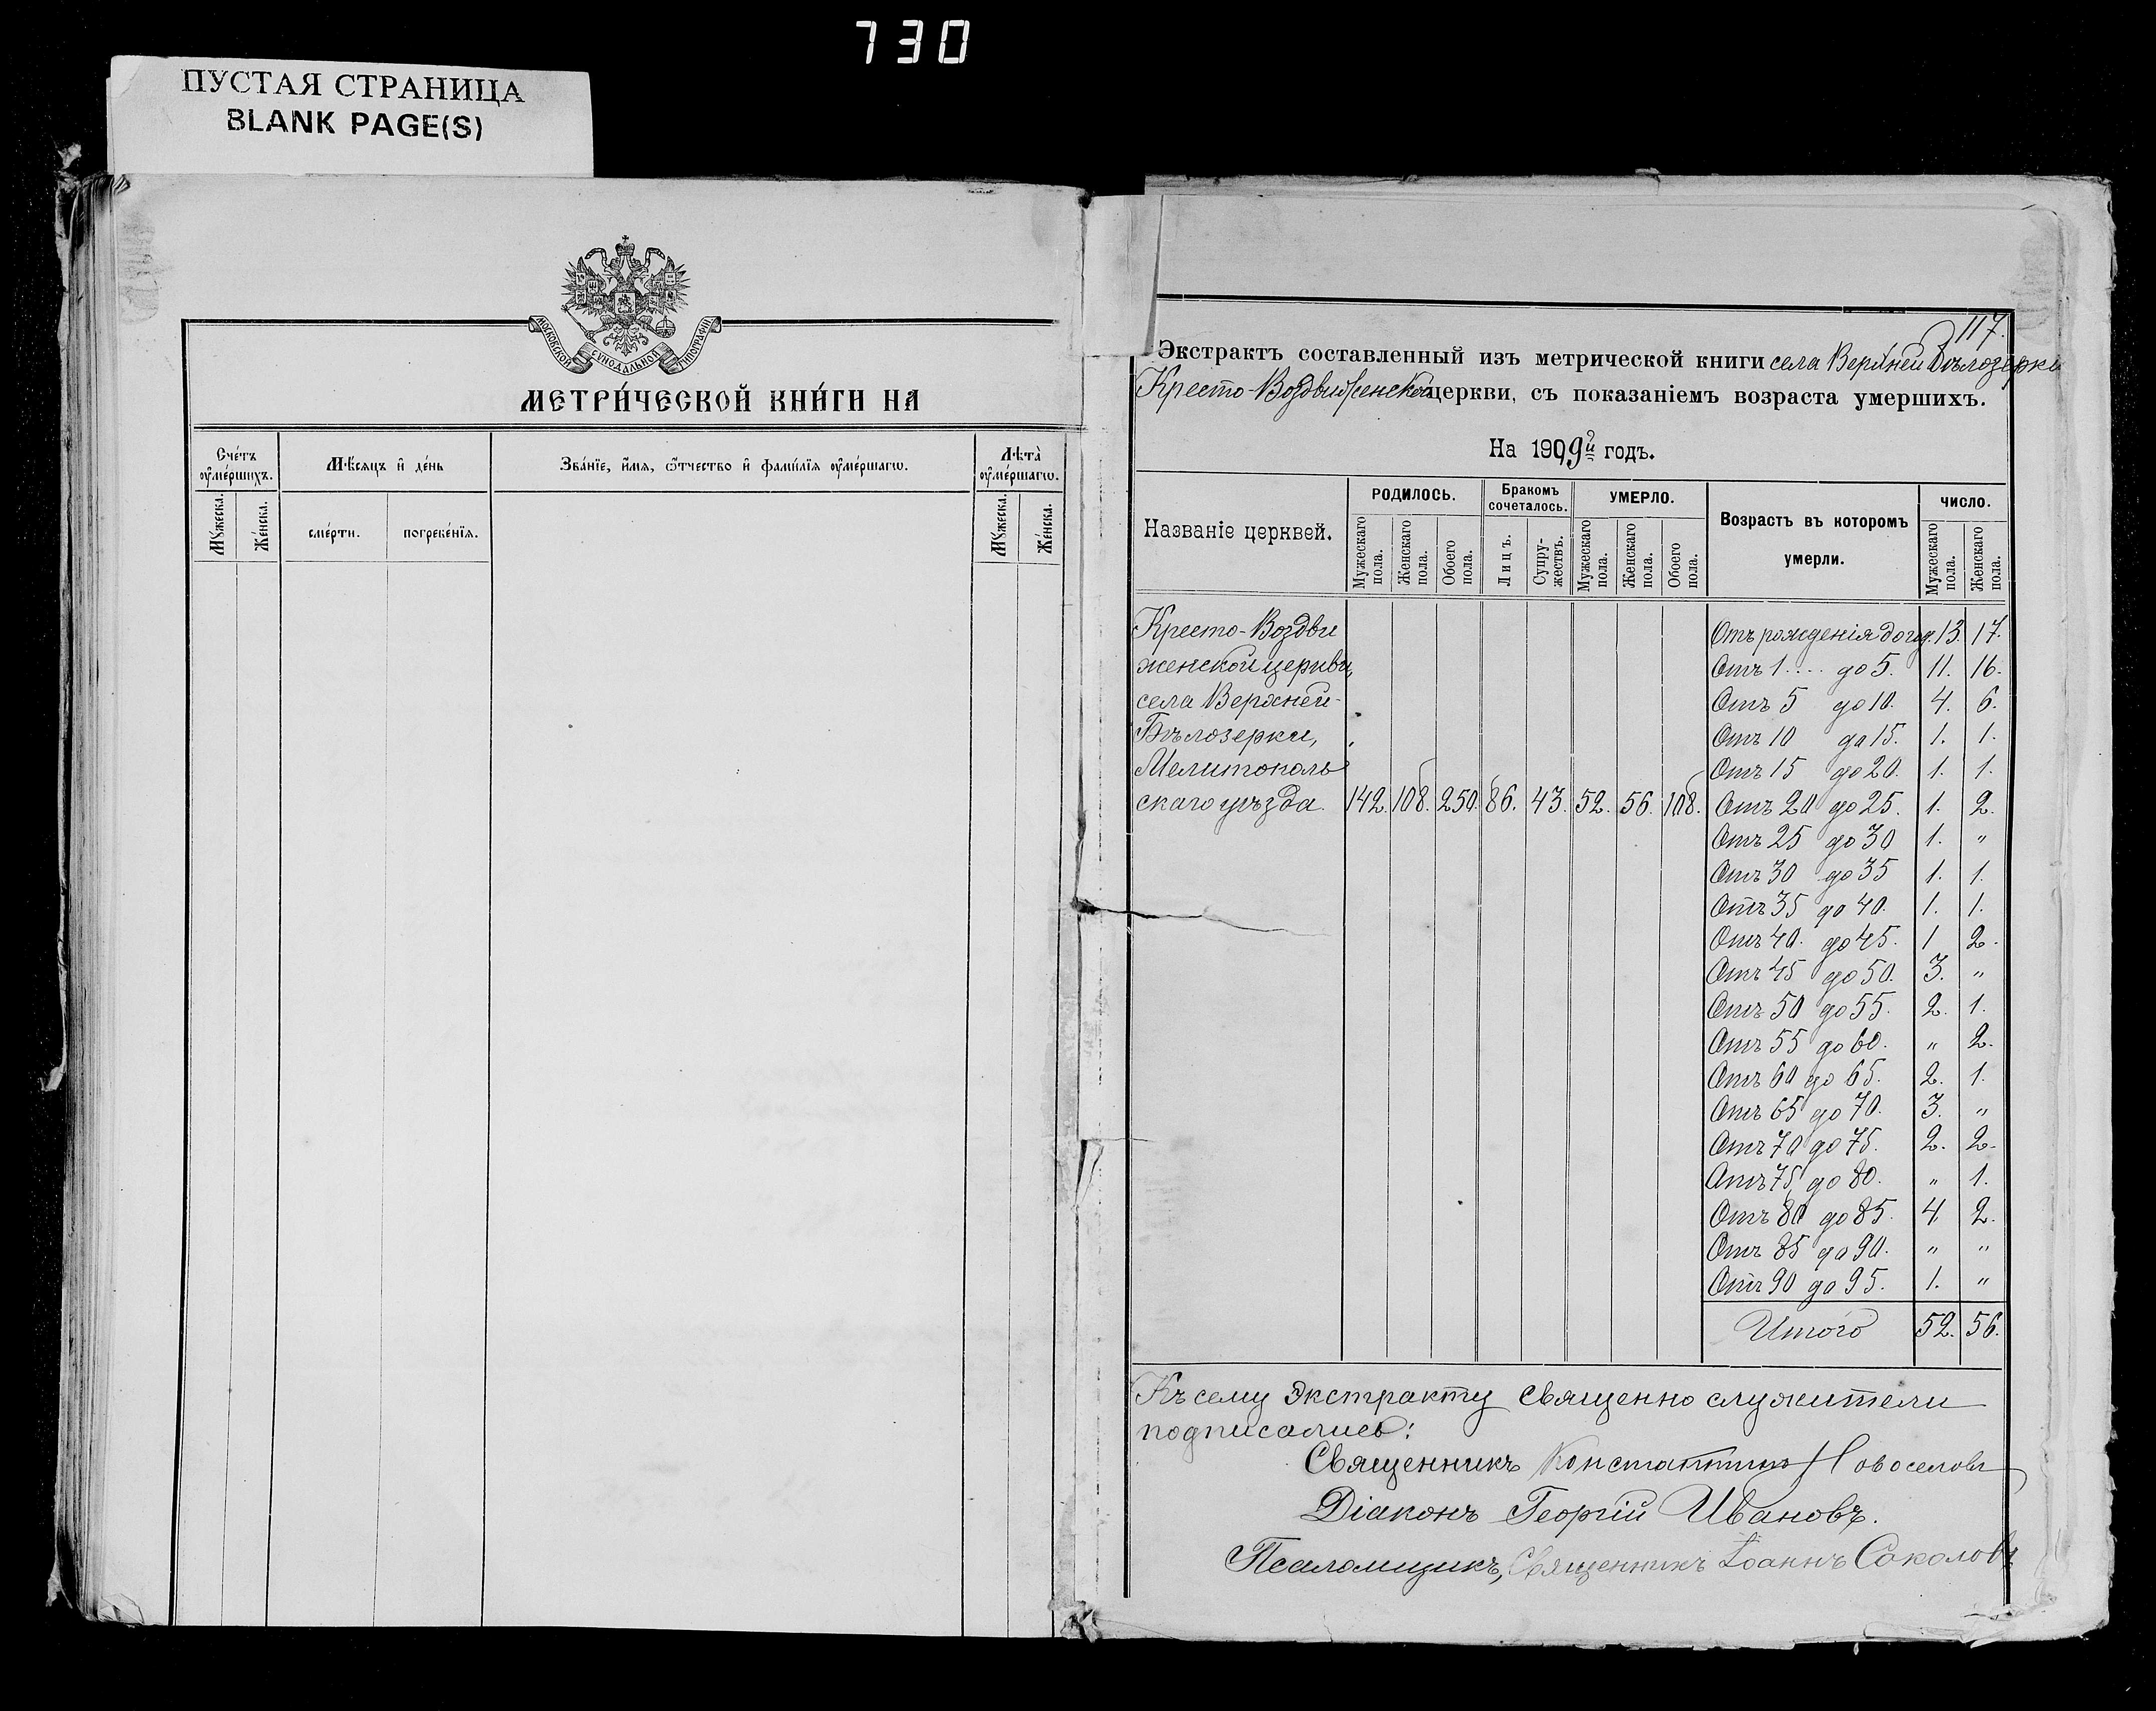 730
ПУСТАЯ СТРАНИЦА
BLANK PAGE(S)
МОСКОВСКОЙ СѴНОДАЛЬНОЙ ТИПОГРАФІИ
МЕТРИ́ЧЕСКОЙ КНИ́ГИ НА
Сче́тъ ᲂу҆ме́ршихъ.
Мѣ́сяцъ и҆ де́нь
Зва́нїе, и҆́мѧ, ѻ҆́тчество и҆ фами́лїѧ ᲂу҆ме́ршагѡ.
Лѣ̀та ᲂу҆ме́ршагѡ.
Мꙋ́жеска.
Же́нска.
сме́рти.
погребе́нїѧ.
Мꙋ́жеска.
Же́нска.
117.
Экстрактъ составленный изъ метрической книги села Верхней Бѣлозерки
Кресто-Воздвиженской церкви, съ показаніемъ возраста умершихъ.
На 1909й годъ.
Названіе церквей.
РОДИЛОСЬ.
Бракомъ сочеталось.
УМЕРЛО.
Возрастъ въ которомъ умерли.
ЧИСЛО.
Мужескаго пола.
Женскаго пола.
Обоего пола.
Лицъ.
Супружествъ.
Мужескаго пола.
Женскаго пола.
Обоего пола.
Мужескаго пола.
Женскаго пола.
Кресто-Воздви Отъ рожденія до год. 13. 17.
женской церкви, Отъ 1.... до 5. 11. 16.
села Верхней- Отъ 5 до 10. 4. 6.
Бѣлозерки, Отъ 10 до 15. 1. 1.
Мелитополь Отъ 15 до 20. 1. 1.
скаго уѣзда. 142. 108. 250. 86. 43. 52. 56. 108. Отъ 20 до 25. 1. 2.
Отъ 25 до 30 1. "
Отъ 30 до 35 1. 1.
Отъ 35 до 40. 1. 1.
Отъ 40. до 45. 1 2.
Отъ 45 до 50. 3. "
Отъ 50 до 55. 2. 1.
Отъ 55 до 60. " 2.
Отъ 60 до 65. 2. 1.
Отъ 65 до 70. 3. "
Отъ 70 до 75. 2. 2.
Отъ 75 до 80. " 1.
Отъ 80 до 85. 4. 2.
Отъ 85 до 90. " "
Отъ 90 до 95. 1. "
Итого 52. 56.
Къ сему Экстракту священно служители
подписались:
Священникъ Константинъ Новоселовъ
Діаконъ Георгій Ивановъ.
Псаломщикъ, Священникъ Іоаннъ Соколовъ